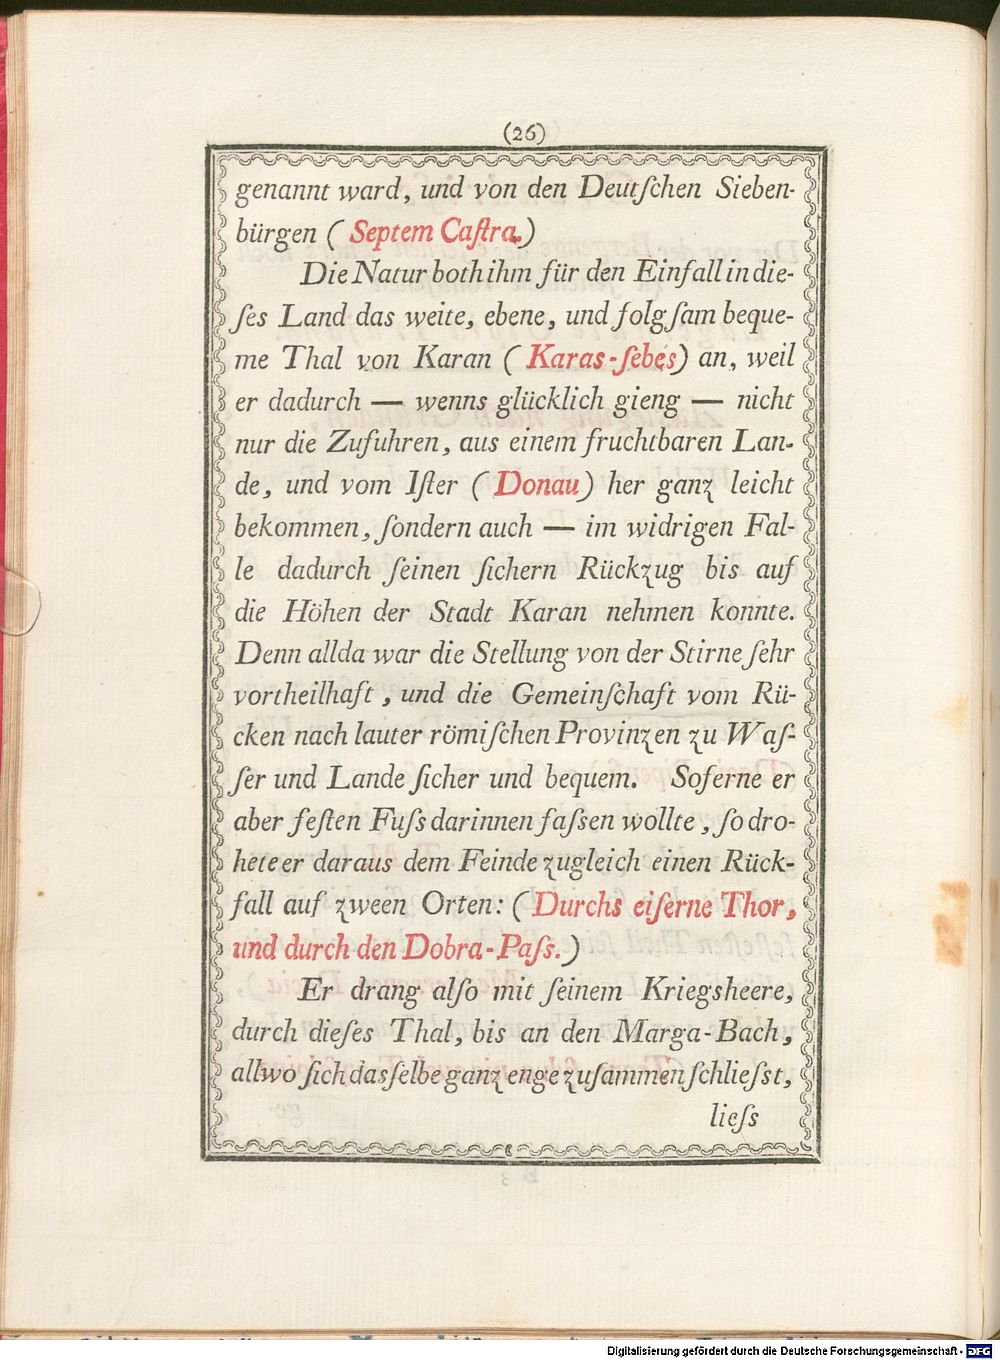 (26)
genannt ward, und von den Deutſchen Sieben-
bürgen ( Septem Caſtra.)
Die Natur both ihm für den Einfall in die-
ſes Land das weite, ebene, und folgſam beque-
me Thal von Karan ( Karas-ſebes) an, weil
er dadurch — wenns glücklich gieng — nicht
nur die Zufuhren, aus einem fruchtbaren Lan-
de, und vom Iſter ( Donau) her ganz leicht
bekommen, ſondern auch — im widrigen Fal-
le dadurch ſeinen ſichern Rückzug bis auf
die Höhen der Stadt Karan nehmen konnte.
Denn allda war die Stellung von der Stirne ſehr
vortheilhaft, und die Gemeinſchaft vom Rü-
cken nach lauter römiſchen Provinzen zu Waſ-
ſer und Lande ſicher und bequem. Soferne er
aber feſten Fuſs darinnen faſsen wollte, ſo dro-
hete er daraus dem Feinde zugleich einen Rück-
fall auf zween Orten: ( Durchs eiſerne Thor,
und durch den Dobra-Paſs.)
Er drang alſo mit ſeinem Kriegsheere,
durch dieſes Thal, bis an den Marga-Bach,
allwo ſich dasſelbe ganz enge zuſammen ſchlieſst,
lieſs
Digitalisierung gefördert durch die Deutsche Forschungsgemeinschaft - DFG